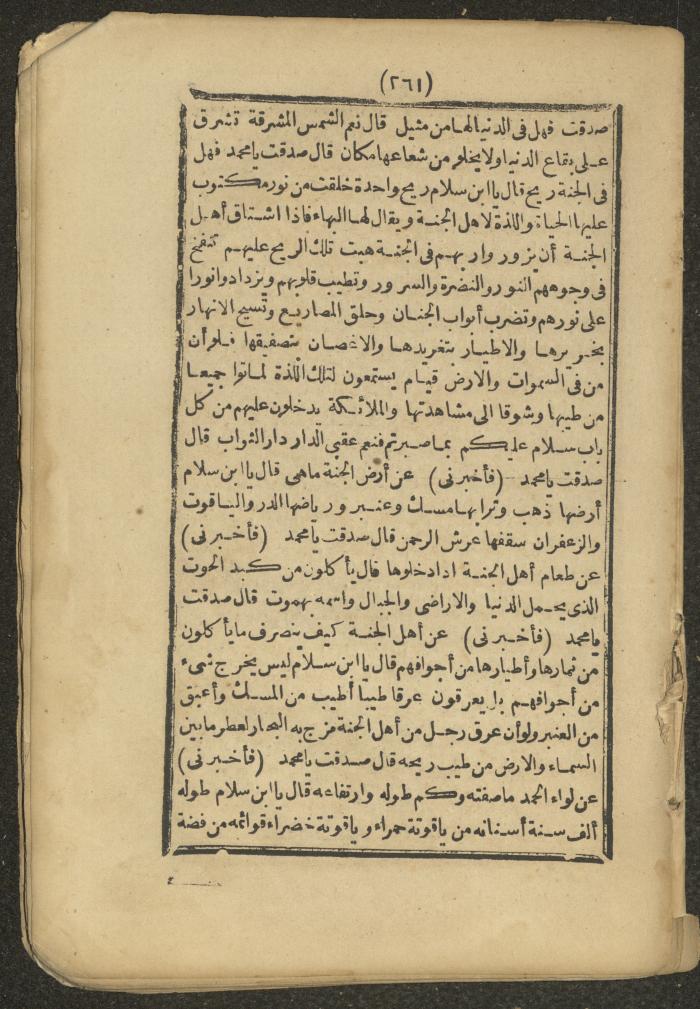 (٢٦١)
صدقت فهل فى الدنيا لها من مثيل قال نعم الشمس المشرقة تشرق
على بقاع الدنيا ولا يخلو من شعاعها مكان قال صدقت يا محمد فهل
فى الجنة ريح قال يا ابن سلام ريح واحدة خلقت من نور مكتوب
عليها الحياة واللذة لاهل الجنة ويقال لها البهاء فاذا اشتاق أهل
الجنة أن يزوروا ربهم فى الجنة هبت تلك الريح عليهم تنفخ
فى وجوههم النور والنضرة والسرور وتطيب قلوبهم ويزدادوا نورا
على نورهم وتضرب أبواب الجنان وحلق المصاريع وتسبح الانهار
بخريرها والاطيار بتغريدها والاغصان بتصفيقها فلو أن
من فى السموات والارض قيام يستمعون لتلك اللذة لماتوا جميعا
من طيبها وشوقا الى مشاهدتها والملائكة يدخلون عليهم من كل
باب سلام عليكم بما صبرتم فنعم عقبى الدار دار الثواب قال
صدقت يا محمد (فأخبرنى) عن أرض الجنة ماهى قال يا ابن سلام
أرضها ذهب وترابها مسك وعنبر ورياضها الدر والياقوت
والزعفران سقفها عرش الرحمن قال صدقت يا محمد (فأخبرنى)
عن طعام أهل الجنة اذا دخلوها قال يأكلون من كبد الحوت
الذى يحمل الدنيا والاراضى والجبال واسمه بهموت قال صدقت
يا محمد (فأخبرنى) عن أهل الجنة كيف ينصرف ما يأكلون
من ثمارها وأطيارها من أجوافهم قال يا ابن سلام ليس يخرج شىء
من أجوافهم بل يعرقون عرقا طيبا أطيب من المسك وأعبق
من العنبر ولو أن عرق رجل من أهل الجنة مزج به البحار لعطر ما بين
السماء والارض من طيب ريحه قال صدقت يا محمد (فأخبرنى)
عن لواء الحمد ما صفته وكم طوله وارتفاعه قال يا ابن سلام طوله
ألف سنة أسنانه من ياقوتة حمراء وياقوتة خضراء قوائمه من فضة